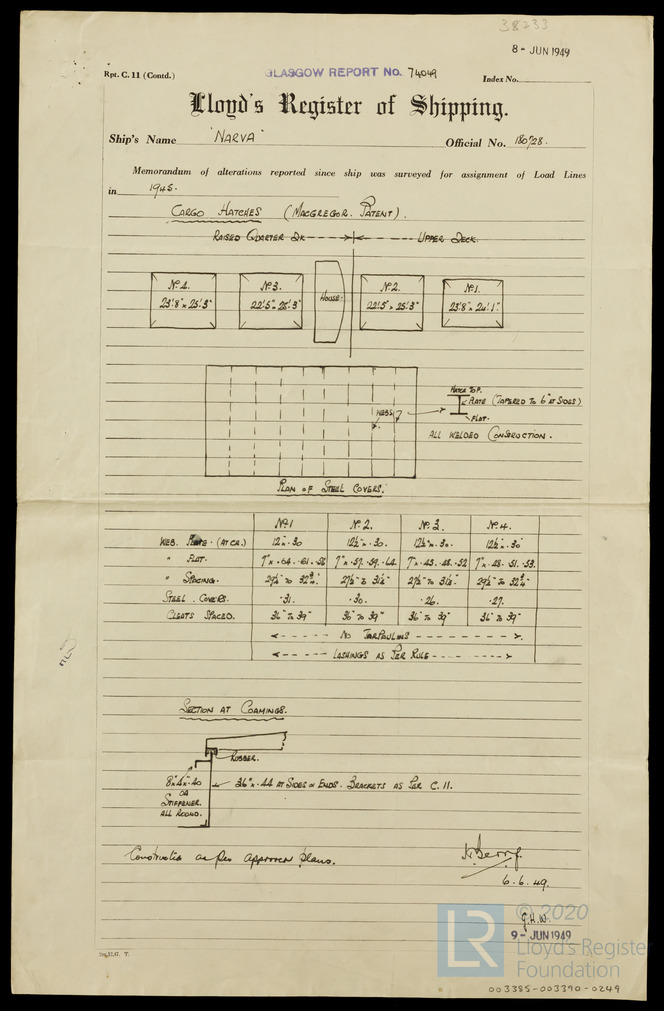 38233
8 - JUN 1949
Rpt. C. 11 (Contd.)
GLASGOW REPORT No. 74049
Index No.
Lloyd's Register of Shipping.
Ship's Name "NARVA" Official No. 180728.
Memorandum of alterations reported since ship was surveyed for assignment of Load Lines
in 1945.
CARGO HATCHES (MACGREGOR. PATENT).
RAISED QUARTER DK UPPER DECK.
No.4. No.3. HOUSE. No.2. No.1.
23'.8" x 25'.3" 22'.5" x 25'.3" 22'.5" x 25'.3" 23'.8" x 24'.1"
HATCH TOP.
PLATE (TAPERED TO 6" AT SIDES)
WEBS
FLAT.
ALL WELDED CONSTRUCTION.
PLAN OF STEEL COVERS.
No.1 No.2. No.3. No.4.
WEB. PLATE. (AT CR.) 12" x .30 12½" x .30. 12½" x .30. 12½" x .30
" FLAT. 7" x .64. .61 .58 7" x .57. .59. .64 7" x .43. .48. .52 7" x .48. .51. .53.
" SPACING. 29½" TO 32¾" 27½" TO 31½" 27½" TO 31½" 29½" TO 32¾"
STEEL. COVERS. .31. .30. .26. .27.
CLEATS SPACED. 36" TO 39" 36" TO 39" 36" TO 39" 36" TO 39"
NO TARPAULINS
LASHINGS AS PER RULE
SECTION AT COAMINGS.
RUBBER.
8" x 4" x .40 36" x .44 AT SIDES & ENDS. BRACKETS AS PER C. 11.
OR
STIFFENER.
ALL ROUND.
Construction as per approved plans.
6.6.49.
G.H.W.
9 - JUN 1949
LR
© 2020
Lloyd's Register
Foundation
003385-003390-0249